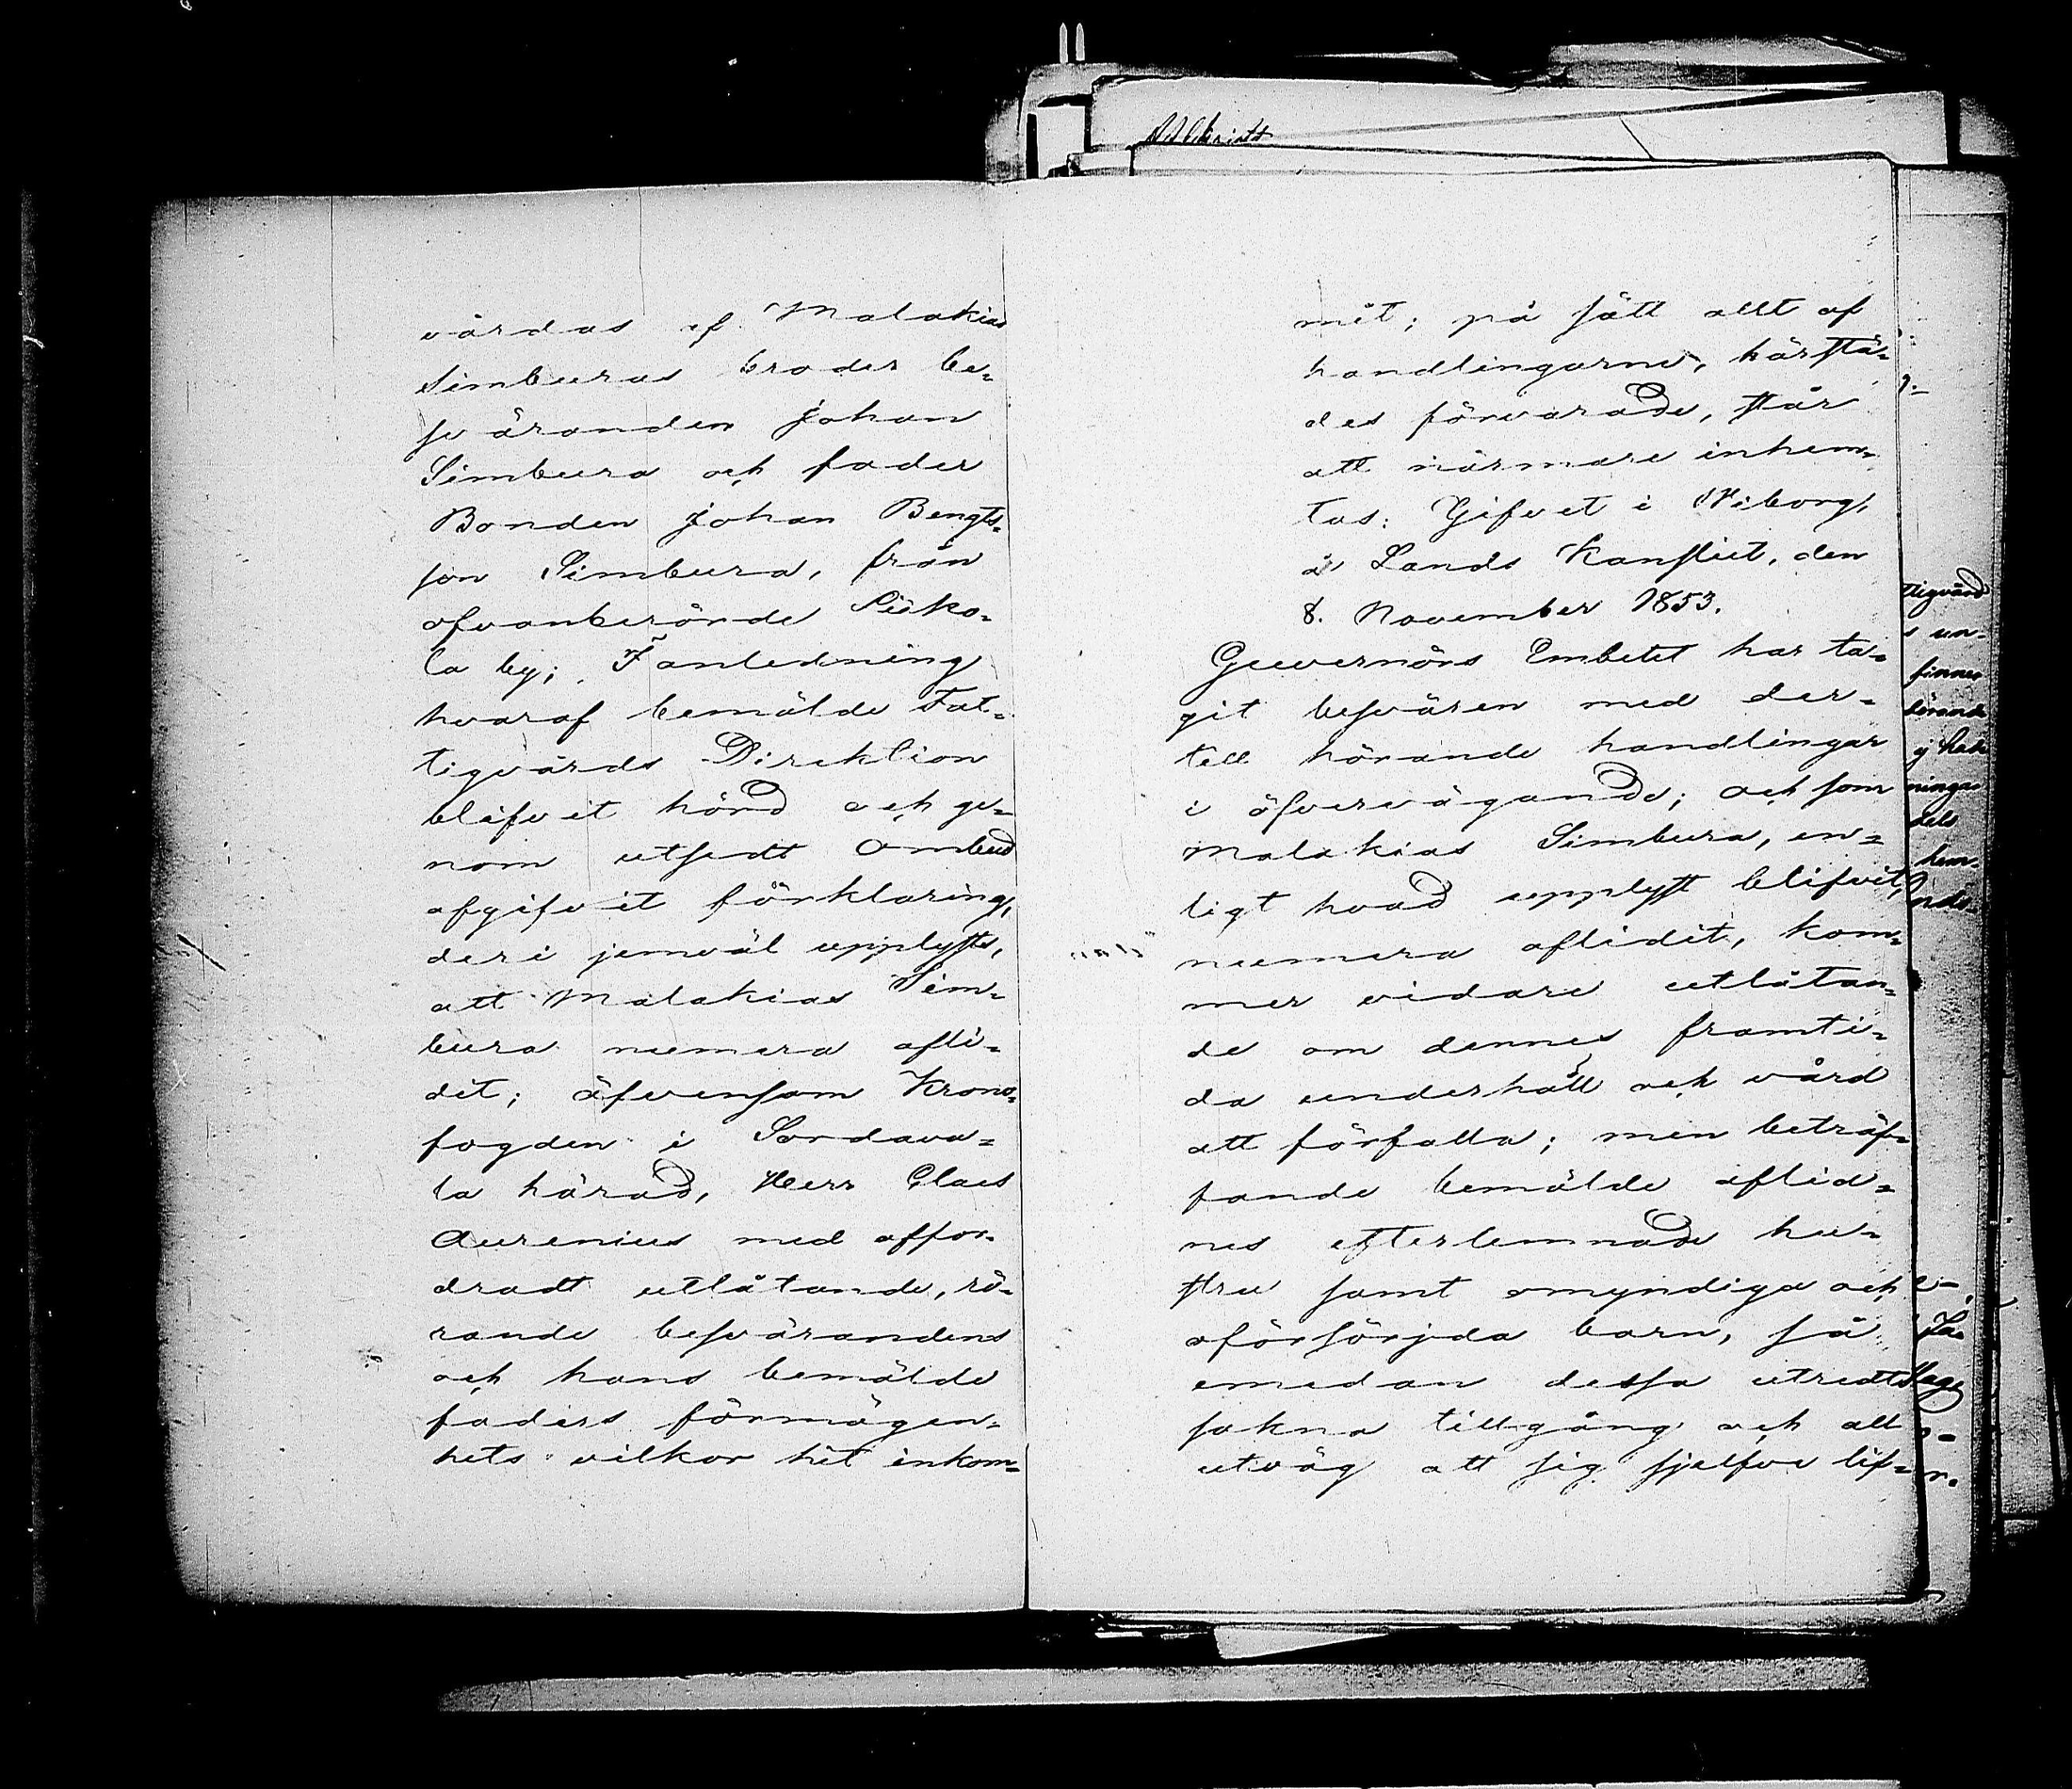 vårdas af Malakias
Simburas broder be-
sväranden Johan
Simbura och fader
Bonden Johan Bengts-
son Simbura, från
ofvanberörde Siiko-
la by; I anledning
hvaraf bemälde Fat-
tigvårds Direktion
blifvit hörd och ge-
nom utsedt ombud
afgifvit förklaring,
deri jemväl upplysts,
att Malakias Sim-
bura numera afli-
dit; äfvensom Krono-
fogden i Sordava-
la härad, Herr Claes
Aurenius med affor-
dradt utlåtande, rö-
rande besvärandens
och hans bemälde
faders förmögen-
hets vilkor hit inkom-
mit; på sätt allt af
handlingarne, härstä-
des förvarade, står
att närmare inhem-
tas. Gifvet i Wiborg,
å Lands Kansliet, den
8. November 1853.
Guvernörs Embetet har ta-
git besvären med der-
till hörande handlingar
i öfvervägande; och som
Malakias Simbura, en-
ligt hvad upplyst blifvit,
numera aflidit, kom-
mer vidare utlåtan-
de om dennes framti-
da underhåll och vård
att förfalla; men beträf-
fande bemälde aflid-
nes efterlemnade hu-
stru samt omyndiga och
oförsörjda barn, så
emedan dessa utredts
sakna tillgång och all
utväg att sig sjelfve lif-